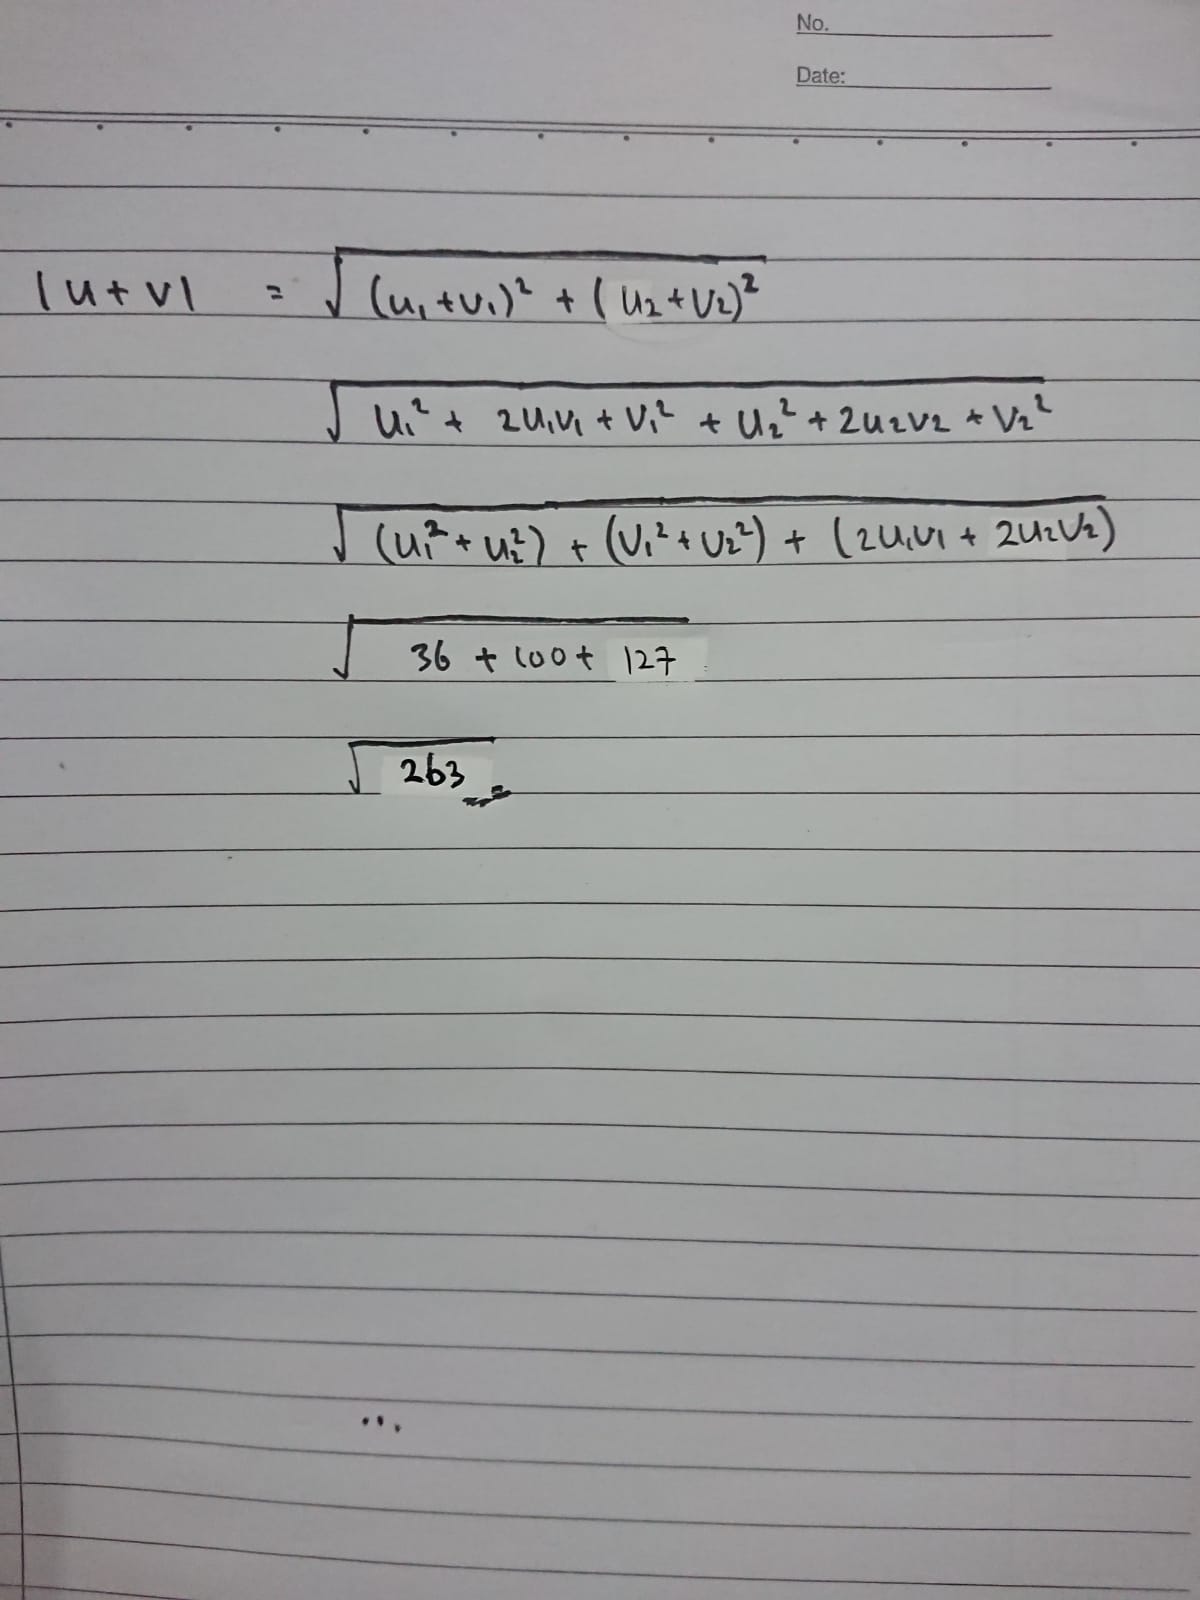 No.
Date:
|u+v| = √(u₁+v₁)² + (u₂+v₂)²
√u₁² + 2u₁v₁ + v₁² + u₂² + 2u₂v₂ + v₂²
√(u₁² + u₂²) + (v₁² + v₂²) + (2u₁v₁ + 2u₂v₂)
√36 + 100 + 127
√263